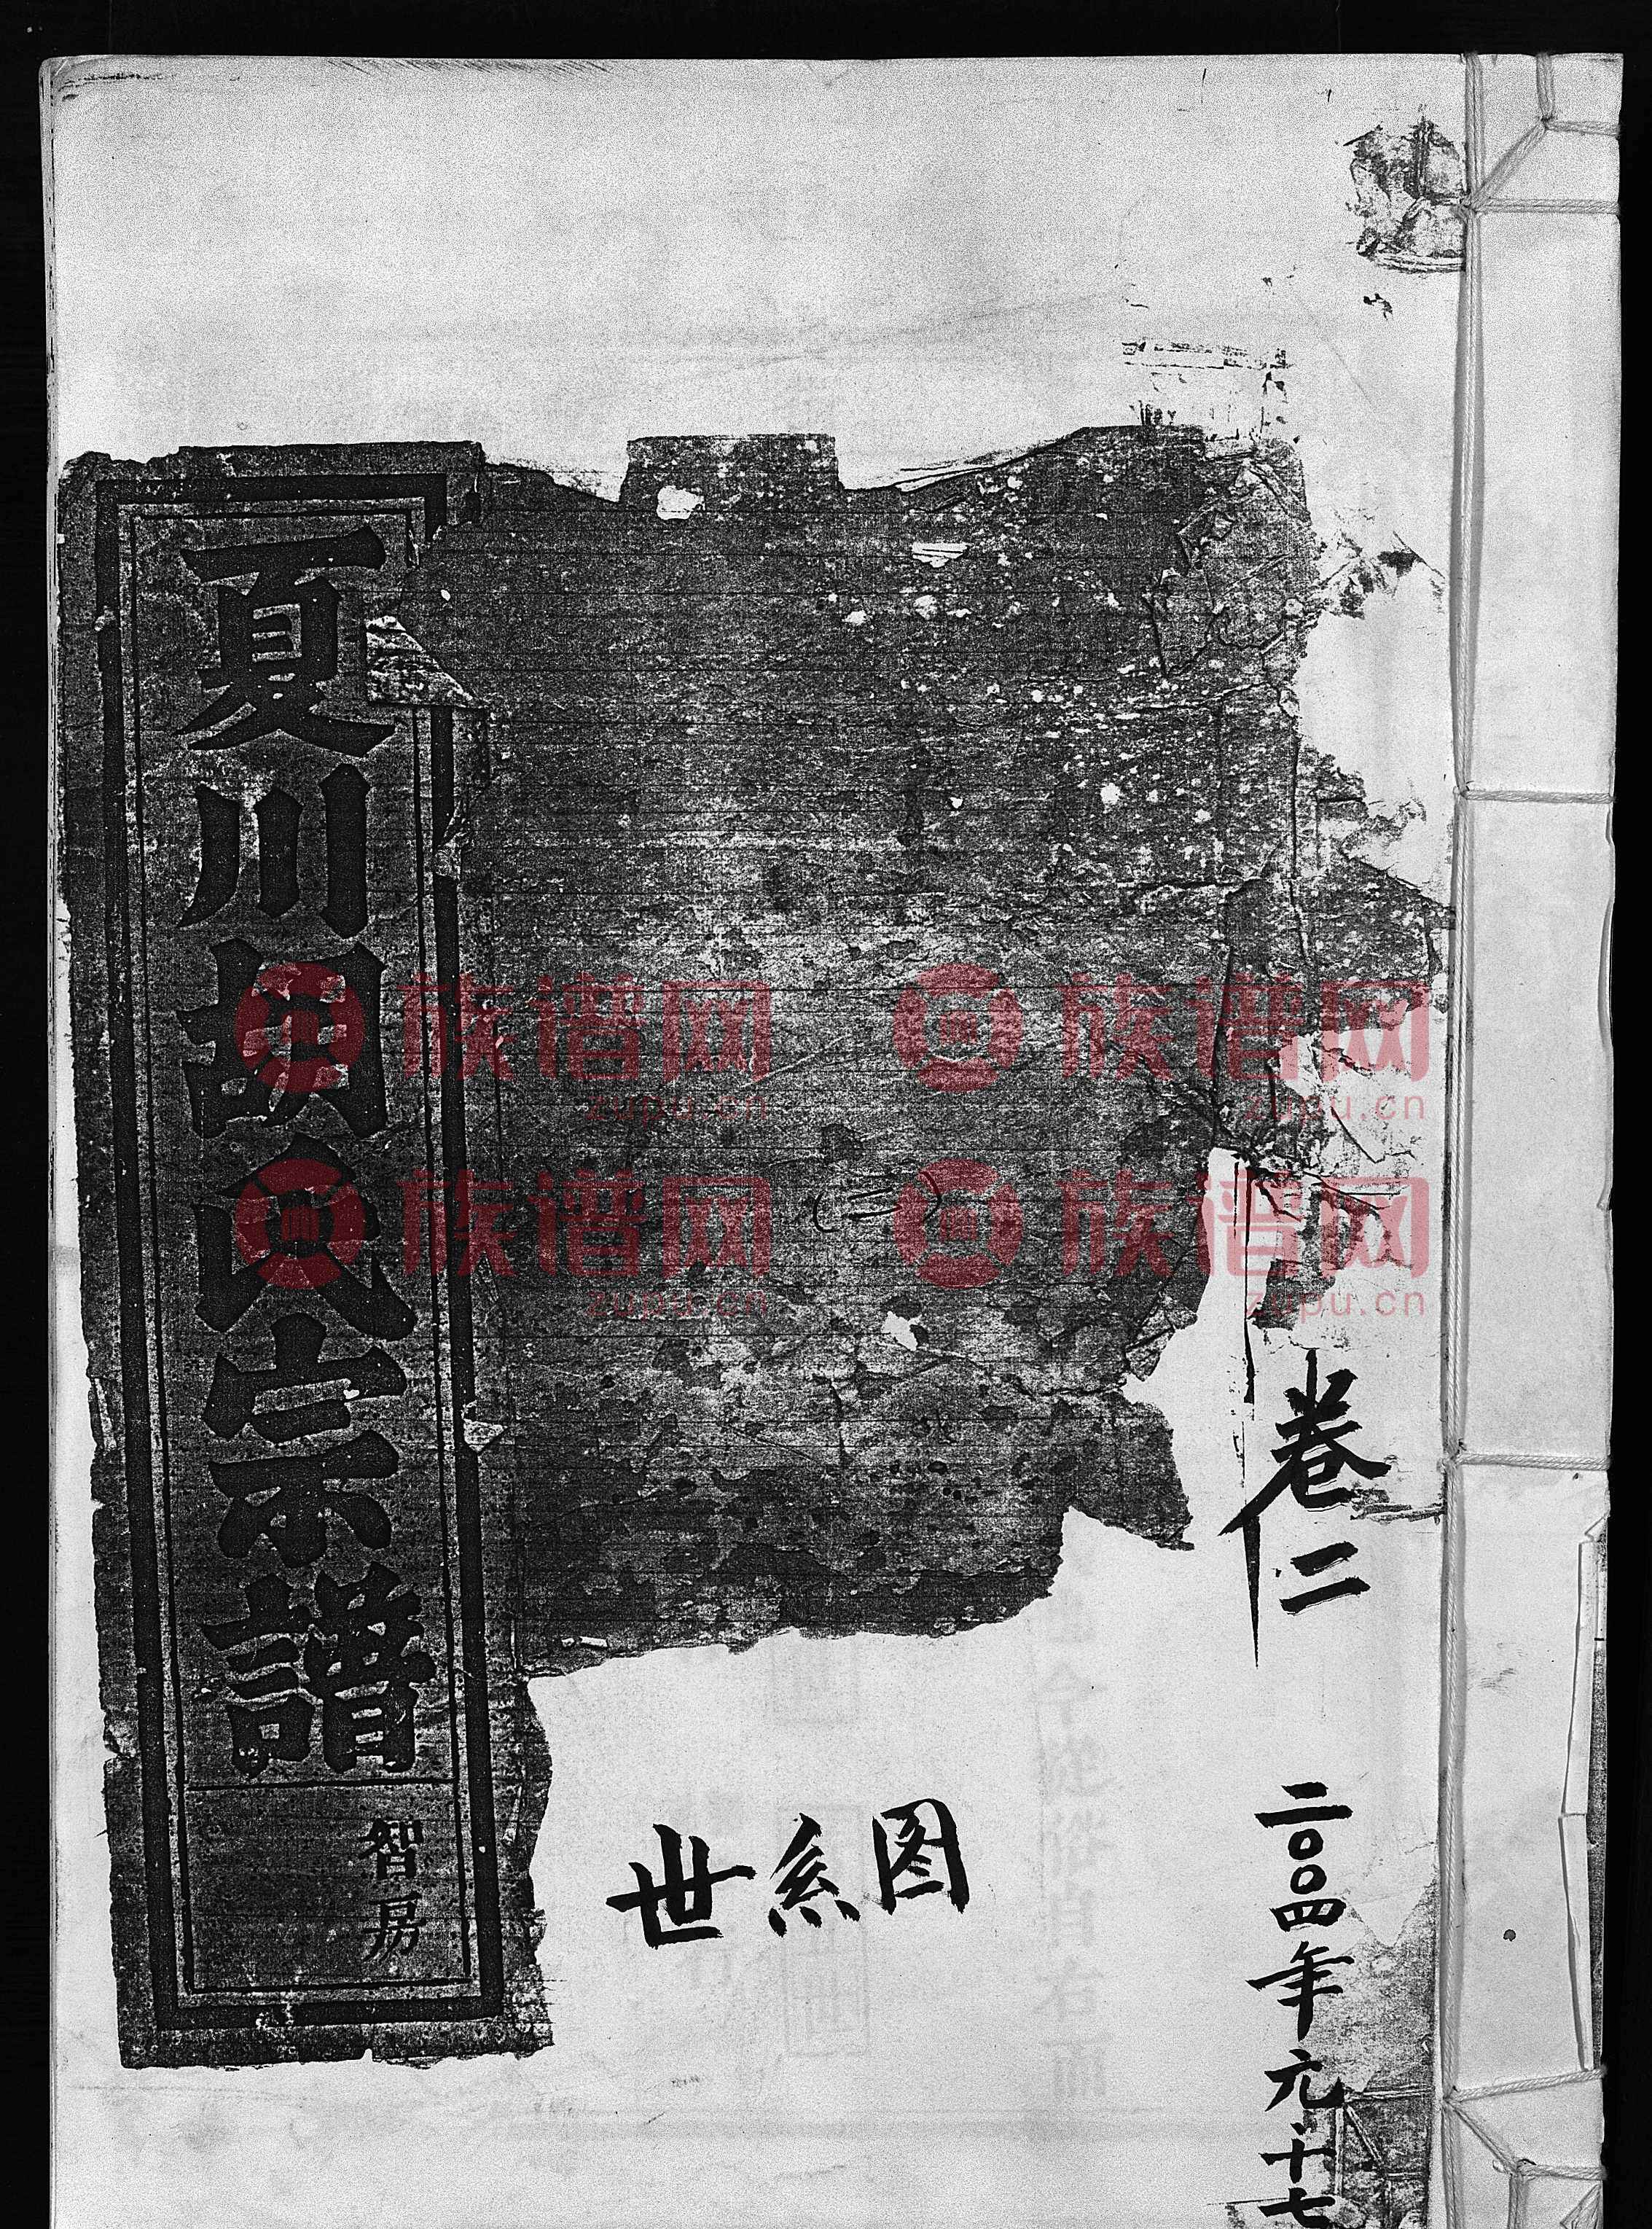 卷二
二〇〇四年元十七
世系图
(二)
夏川胡氏宗譜
智房
族谱网 zupu.cn
族谱网 zupu.cn
族谱网 zupu.cn
族谱网 zupu.cn